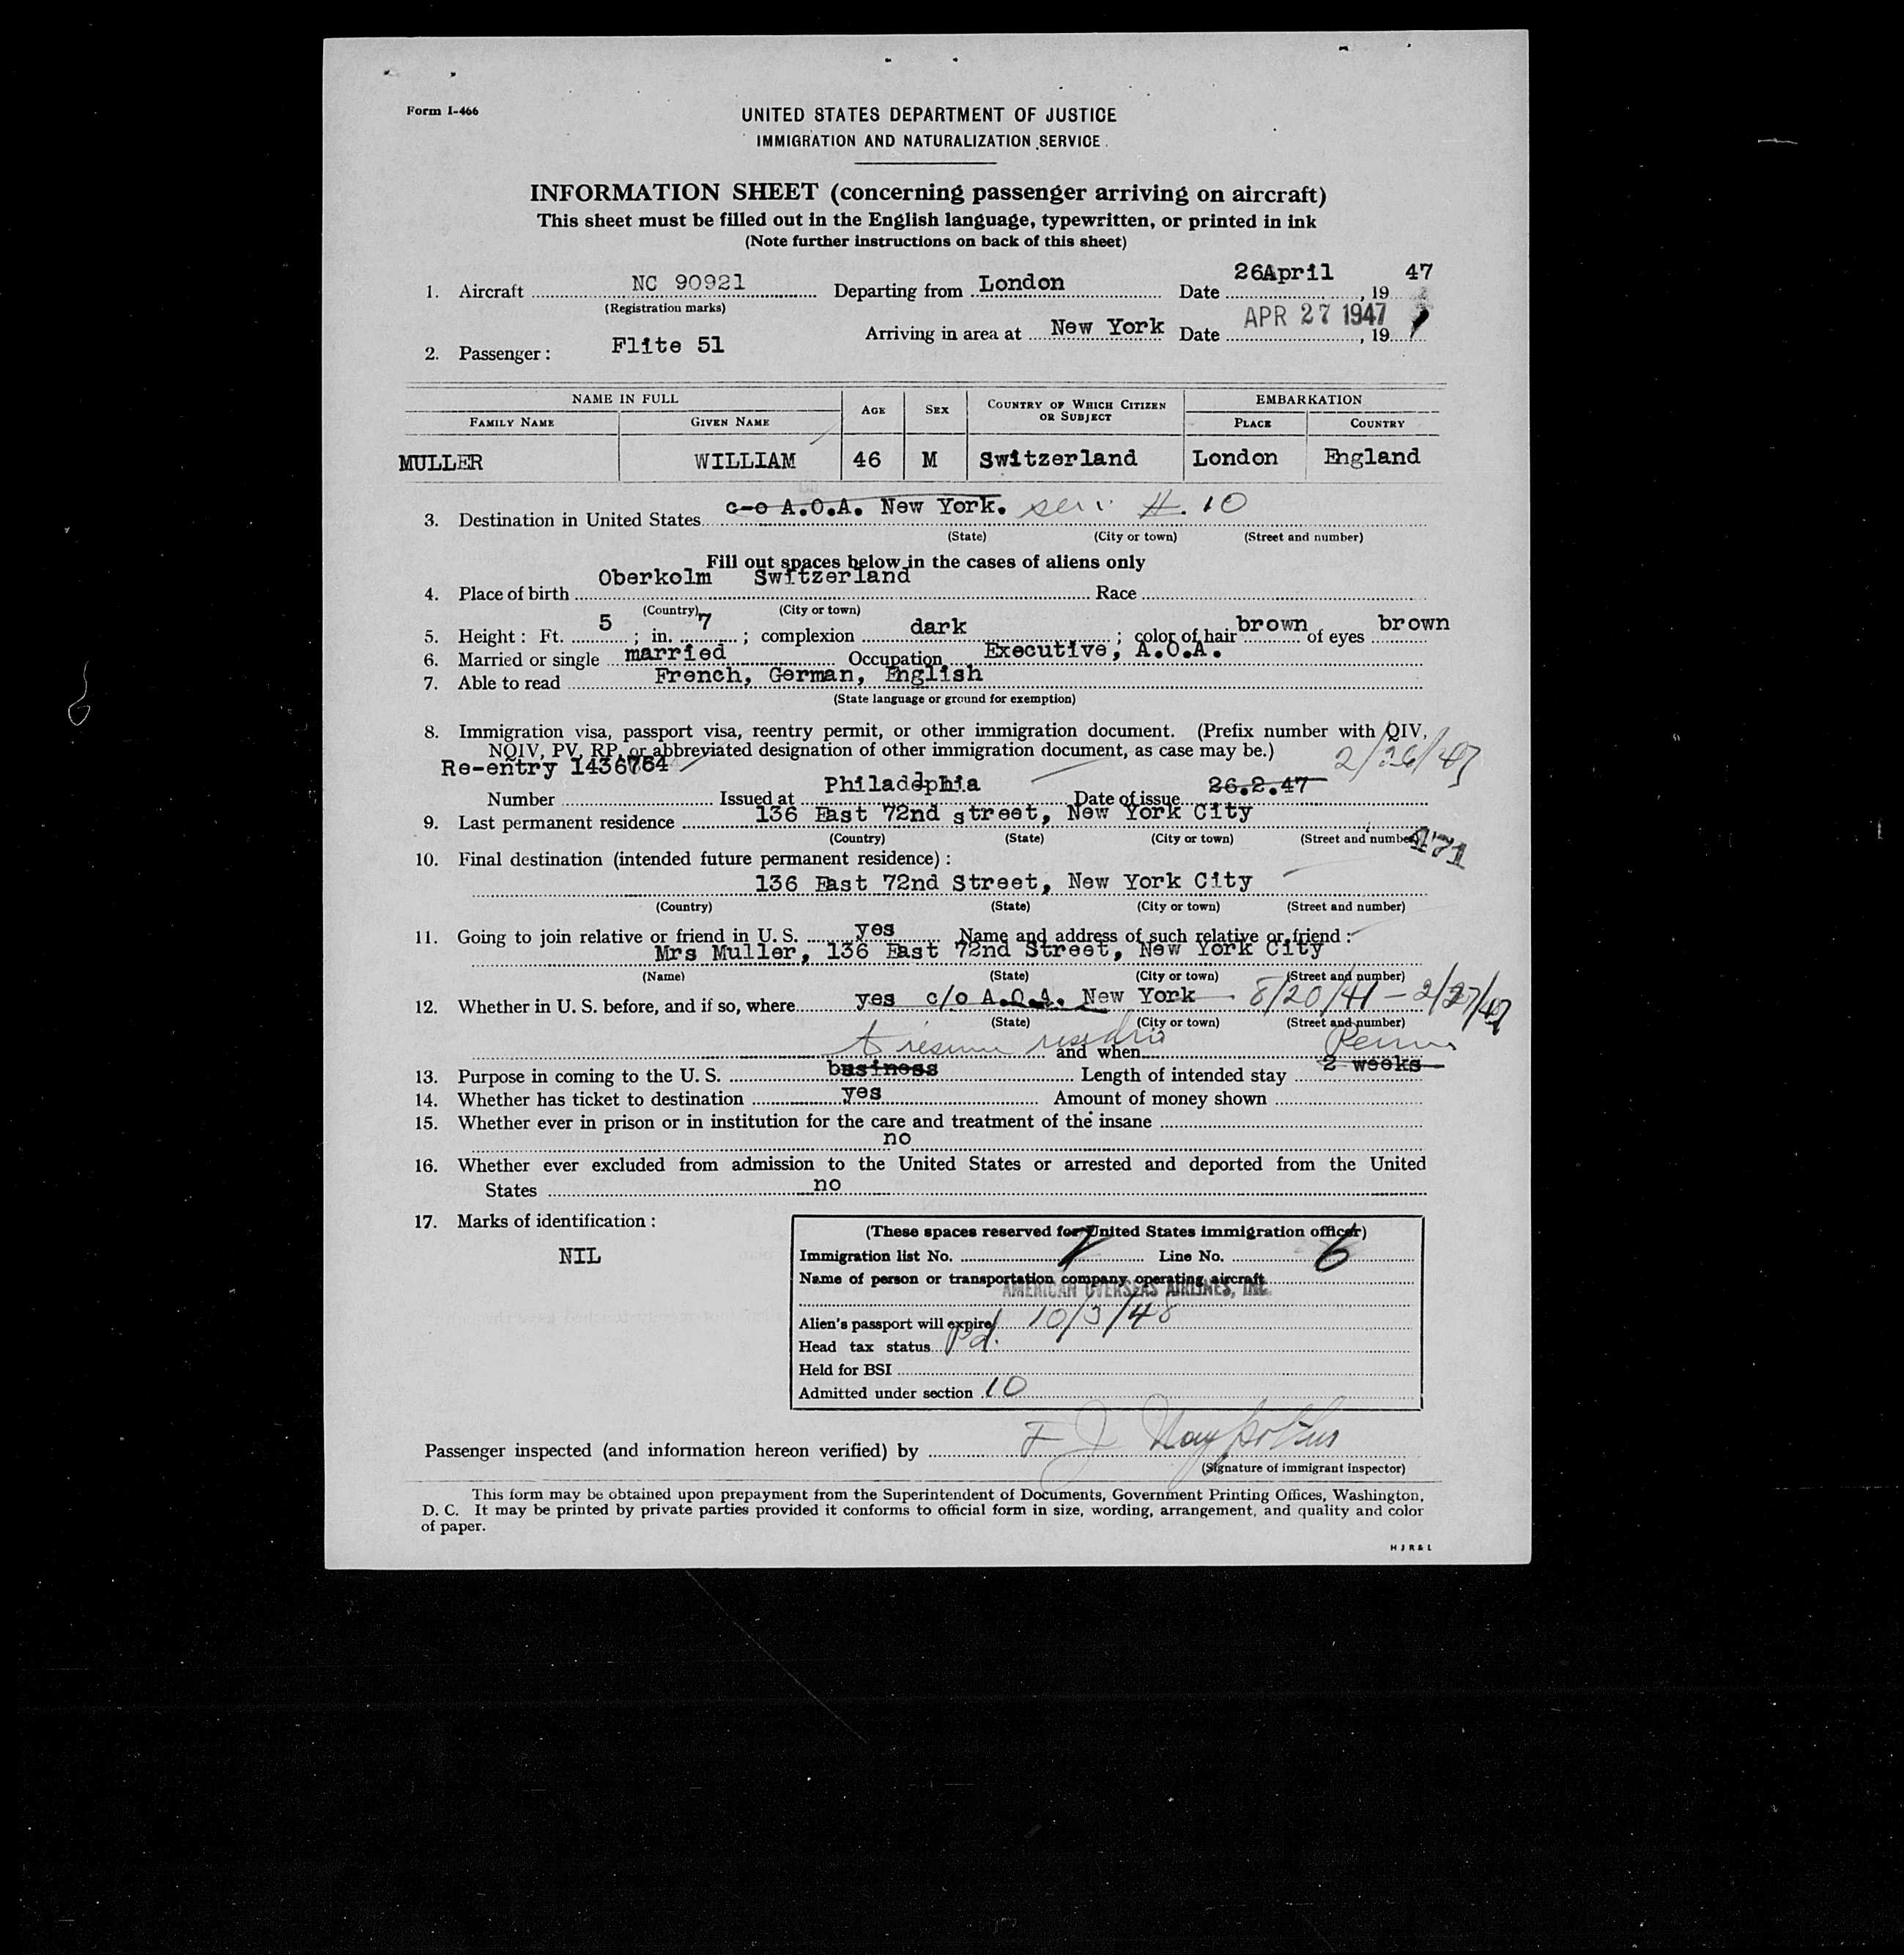 Form I-466
UNITED STATES DEPARTMENT OF JUSTICE
IMMIGRATION AND NATURALIZATION SERVICE
INFORMATION SHEET (concerning passenger arriving on aircraft)
This sheet must be filled out in the English language, typewritten, or printed in ink
(Note further instructions on back of this sheet)
1. Aircraft NC 90921 Departing from London Date 26April, 19 47
(Registration marks)
Arriving in area at New York Date APR 27 1947, 19
2. Passenger: Flite 51
NAME IN FULL AGE SEX COUNTRY OF WHICH CITIZEN OR SUBJECT EMBARKATION
FAMILY NAME GIVEN NAME PLACE COUNTRY
MULLER WILLIAM 46 M Switzerland London England
3. Destination in United States c-o A.O.A. New York. #. 10
(State) (City or town) (Street and number)
Fill out spaces below in the cases of aliens only
4. Place of birth Oberkolm Switzerland Race
(Country) (City or town)
5. Height: Ft. 5; in. 7; complexion dark; color of hair brown of eyes brown
6. Married or single married Occupation Executive, A.O.A.
7. Able to read French, German, English
(State language or ground for exemption)
8. Immigration visa, passport visa, reentry permit, or other immigration document. (Prefix number with QIV,
NQIV, PV, RP, or abbreviated designation of other immigration document, as case may be.) 2/26/47
Re-entry 1436764
Number Issued at Philadlphia Date of issue 26.2.47
9. Last permanent residence 136 East 72nd street, New York City
(Country) (State) (City or town) (Street and number) 471
10. Final destination (intended future permanent residence):
136 East 72nd Street, New York City
(Country) (State) (City or town) (Street and number)
11. Going to join relative or friend in U. S. yes Name and address of such relative or friend:
Mrs Muller, 136 East 72nd Street, New York City
(Name) (State) (City or town) (Street and number)
12. Whether in U. S. before, and if so, where yes c/o A.O.A. New York 8/20/41 - 2/27/47
(State) (City or town) (Street and number)
and when
13. Purpose in coming to the U. S. business Length of intended stay 2 weeks
14. Whether has ticket to destination yes Amount of money shown
15. Whether ever in prison or in institution for the care and treatment of the insane
no
16. Whether ever excluded from admission to the United States or arrested and deported from the United
States no
17. Marks of identification:
NIL
(These spaces reserved for United States immigration officer)
Immigration list No. Line No. 6
Name of person or transportation company operating aircraft
AMERICAN OVERSEAS AIRLINES, INC.
Alien's passport will expire 10/3/48
Head tax status Pd.
Held for BSI
Admitted under section 10
Passenger inspected (and information hereon verified) by
(Signature of immigrant inspector)
This form may be obtained upon prepayment from the Superintendent of Documents, Government Printing Offices, Washington,
D. C. It may be printed by private parties provided it conforms to official form in size, wording, arrangement, and quality and color
of paper.
H J R & L